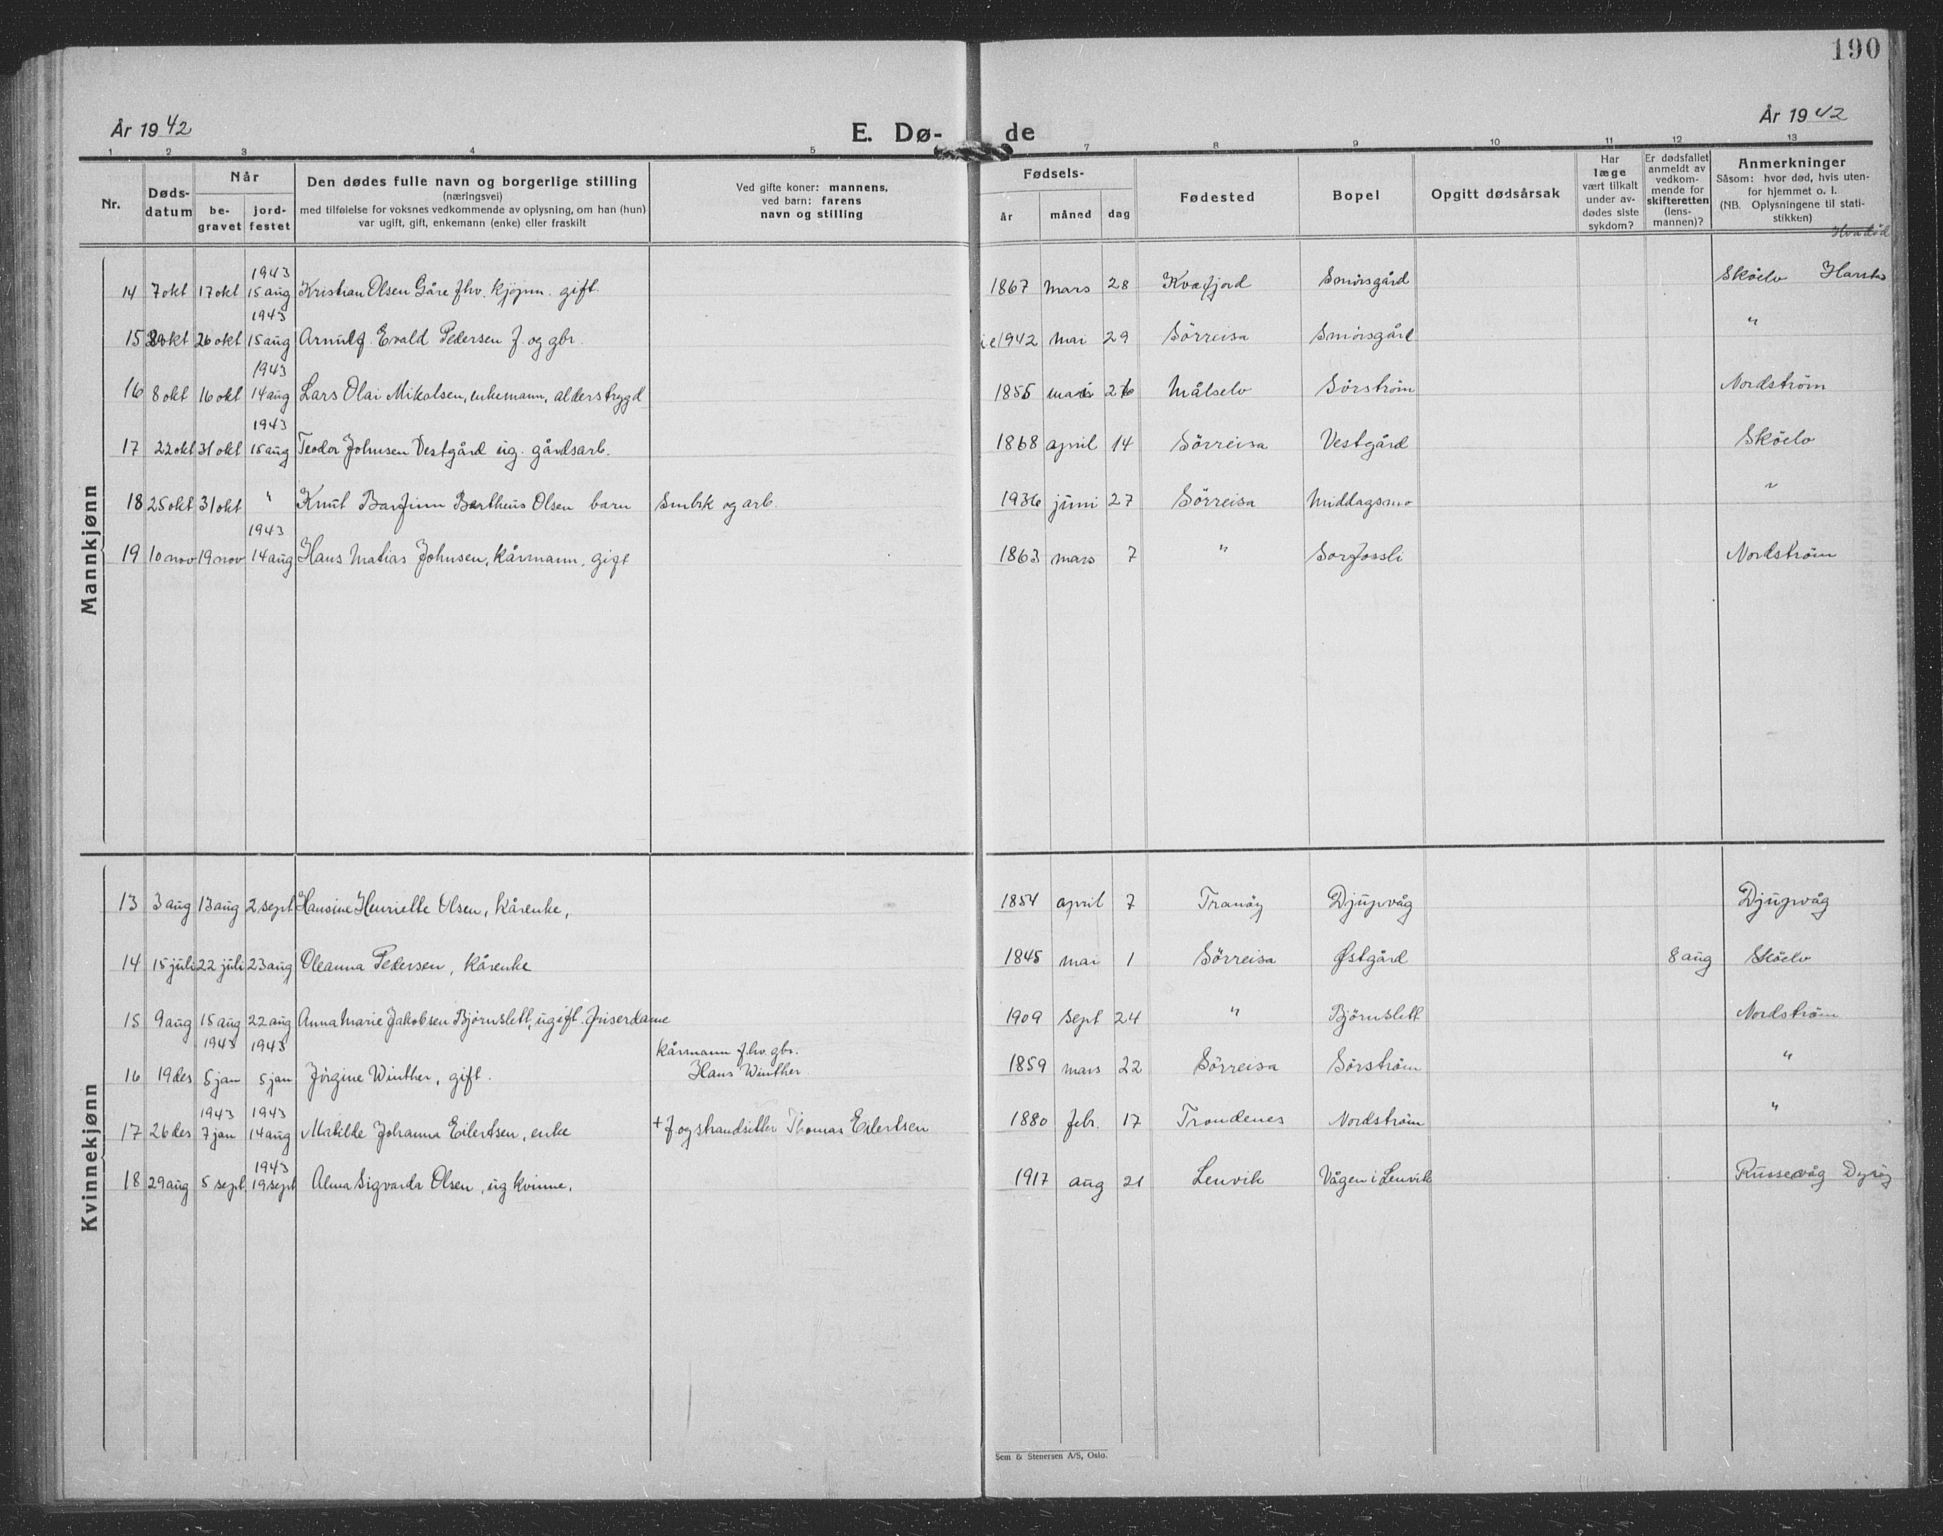 190
År 1942
E. Dø- de
År 1942
1 2 3 4 5 7 8 9 10 11 12 13
Nr.
Døds-datum
Når
be-gravet
jord-festet
Den dødes fulle navn og borgerlige stilling
(næringsvei)
med tilføielse for voksnes vedkommende av oplysning, om han (hun)
var ugift, gift, enkemann (enke) eller fraskilt
Ved gifte koner: mannens,
ved barn: farens
navn og stilling
Fødsels-
år måned dag
Fødested
Bopel
Opgitt dødsårsak
Har
læge
vært tilkalt
under av-
dødes siste
sykdom?
Er dødsfallet
anmeldt av
vedkom-
mende for
skifteretten
(lens-
mannen)?
Anmerkninger
Såsom: hvor død, hvis uten-
for hjemmet o. l.
(NB. Oplysningene til stati-
stikken)
Hvor død
Mannkjønn
1943
14 7 okt 17 okt 15 aug Kristian Olsen Gåre fhv. kjøpm. gift. 1867 mars 28 Kvæfjord Smørsgård Skøelv
1943
15 okt 26 okt 15 aug Arnulf Evald Pedersen f. og gbr. 1942 mai 29 Sörreisa Smørsgård "
1943
16 8 okt 16 okt 14 aug Lars Olai Mikalsen, enkemann, alderstrygd 1855 26 Målselv Sörström Nordström
1943
17 22 okt 31 okt 15 aug Teodor Johnsen Vestgård ug. gårdsarb. 1868 april 14 Sörreisa Vestgård Sköelv
18 25 okt 31 okt " Knut Barfinn Bertheus Olsen barn Småbk og arb. 1936 juni 27 Sörreisa Middagsmo "
1943
19 10 nov 19 nov 14 aug Hans Matias Johnsen, kårmann, gift 1863 mars 7 " Sørfossli Nordström
Kvinnekjønn
13 3 aug 13 aug 2. sept Hansine Henriette Olsen, kårenke, 1854 april 7 Tranöy Djupvåg Djupvåg
14 15 juli 22 juli 23 aug Oleanna Pedersen, kårenke 1845 mai 1 Sörreisa Østgård 8 aug Sköelv
15 9 aug 15 aug 22 aug Anna Marie Jakobsen Björnslett, ugift. friserdame 1909 sept 24 " Björnslett Nordström
1943 1943 kårmann f.hv. gbr.
16 19 des 5 jan 5 jan Jörgine Winther, gift. Hans Winther 1859 mars 22 Sörreisa Sörström "
1943 1943
17 26 des 7 jan 14 aug Matilde Johanna Eilertsen, enke + f og strandsitter Thomas Eilertsen 1880 febr. 17 Trondenes Nordström "
1943
18 29 aug 5 sept. 19 sept Alma Sigvarda Olsen, ug kvinne, 1917 aug 21 Lenvik Vågen i Lenvik Russevåg Dyröy
Sem & Stenersen A/S, Oslo.